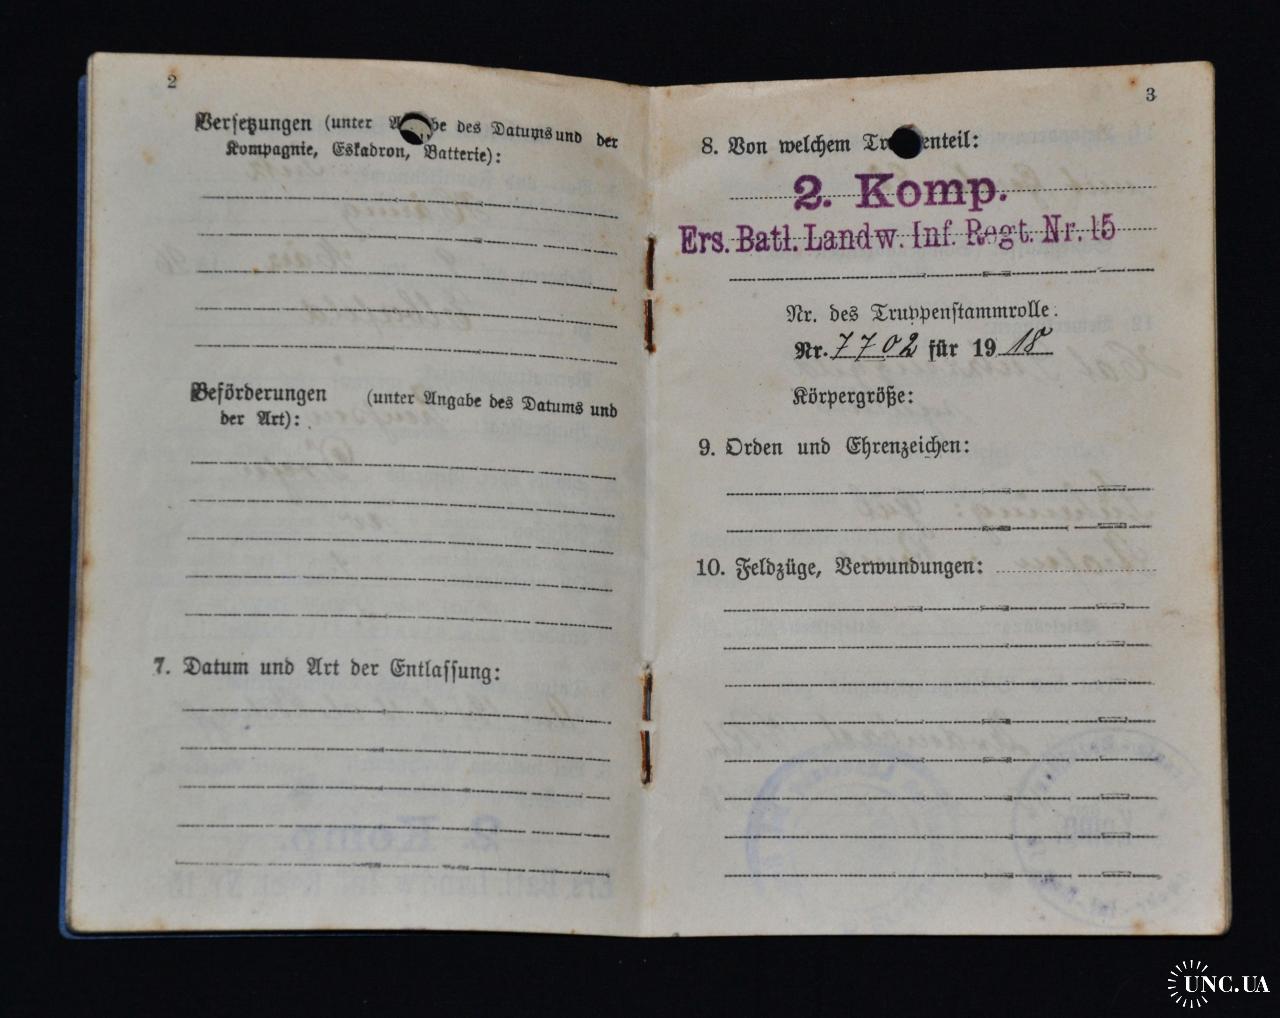 2
Versetzungen (unter Angabe des Datums und der
Kompagnie, Eskadron, Batterie):
Beförderungen (unter Angabe des Datums und
der Art):
7. Datum und Art der Entlassung:
3
8. Von welchem Truppenteil:
2. Komp.
Ers. Batl. Landw. Inf. Regt. Nr. 15
Nr. des Truppenstammrolle:
Nr. 7702 für 1918
Körpergröße:
9. Orden und Ehrenzeichen:
10. Feldzüge, Verwundungen:
UNC.UA